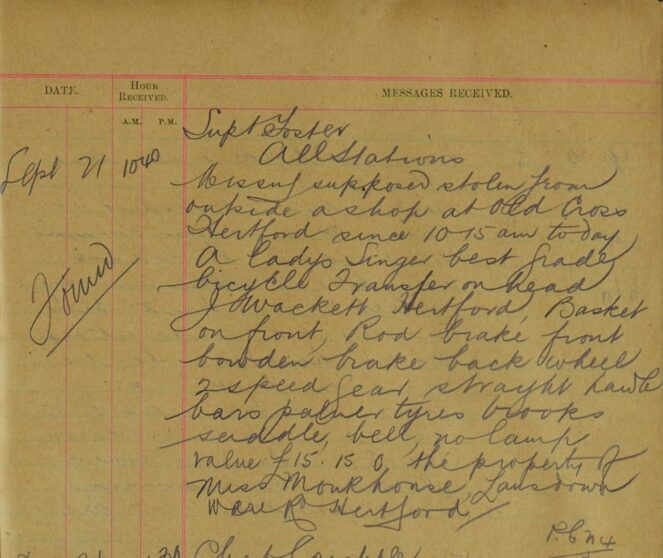 DATE. HOUR RECEIVED. MESSAGES RECEIVED.
A.M. P.M.
Supt Foster
All Stations
Sept 21 1040 Missing supposed stolen from
outside a shop at Old Cross
Hertford since 10-15 am to day
A ladys Singer best grade
bicycle Transfer on head
Found
J Wackett Hertford, Basket
on front, Rod brake front
bowden brake back wheel
2 speed gear, straight handle
bars palmer tyres brooks
saddle, bell, no lamp
value £15. 15. 0, the property of
Miss Monkhouse, Lansdown
Ware Rd Hertford
P.C